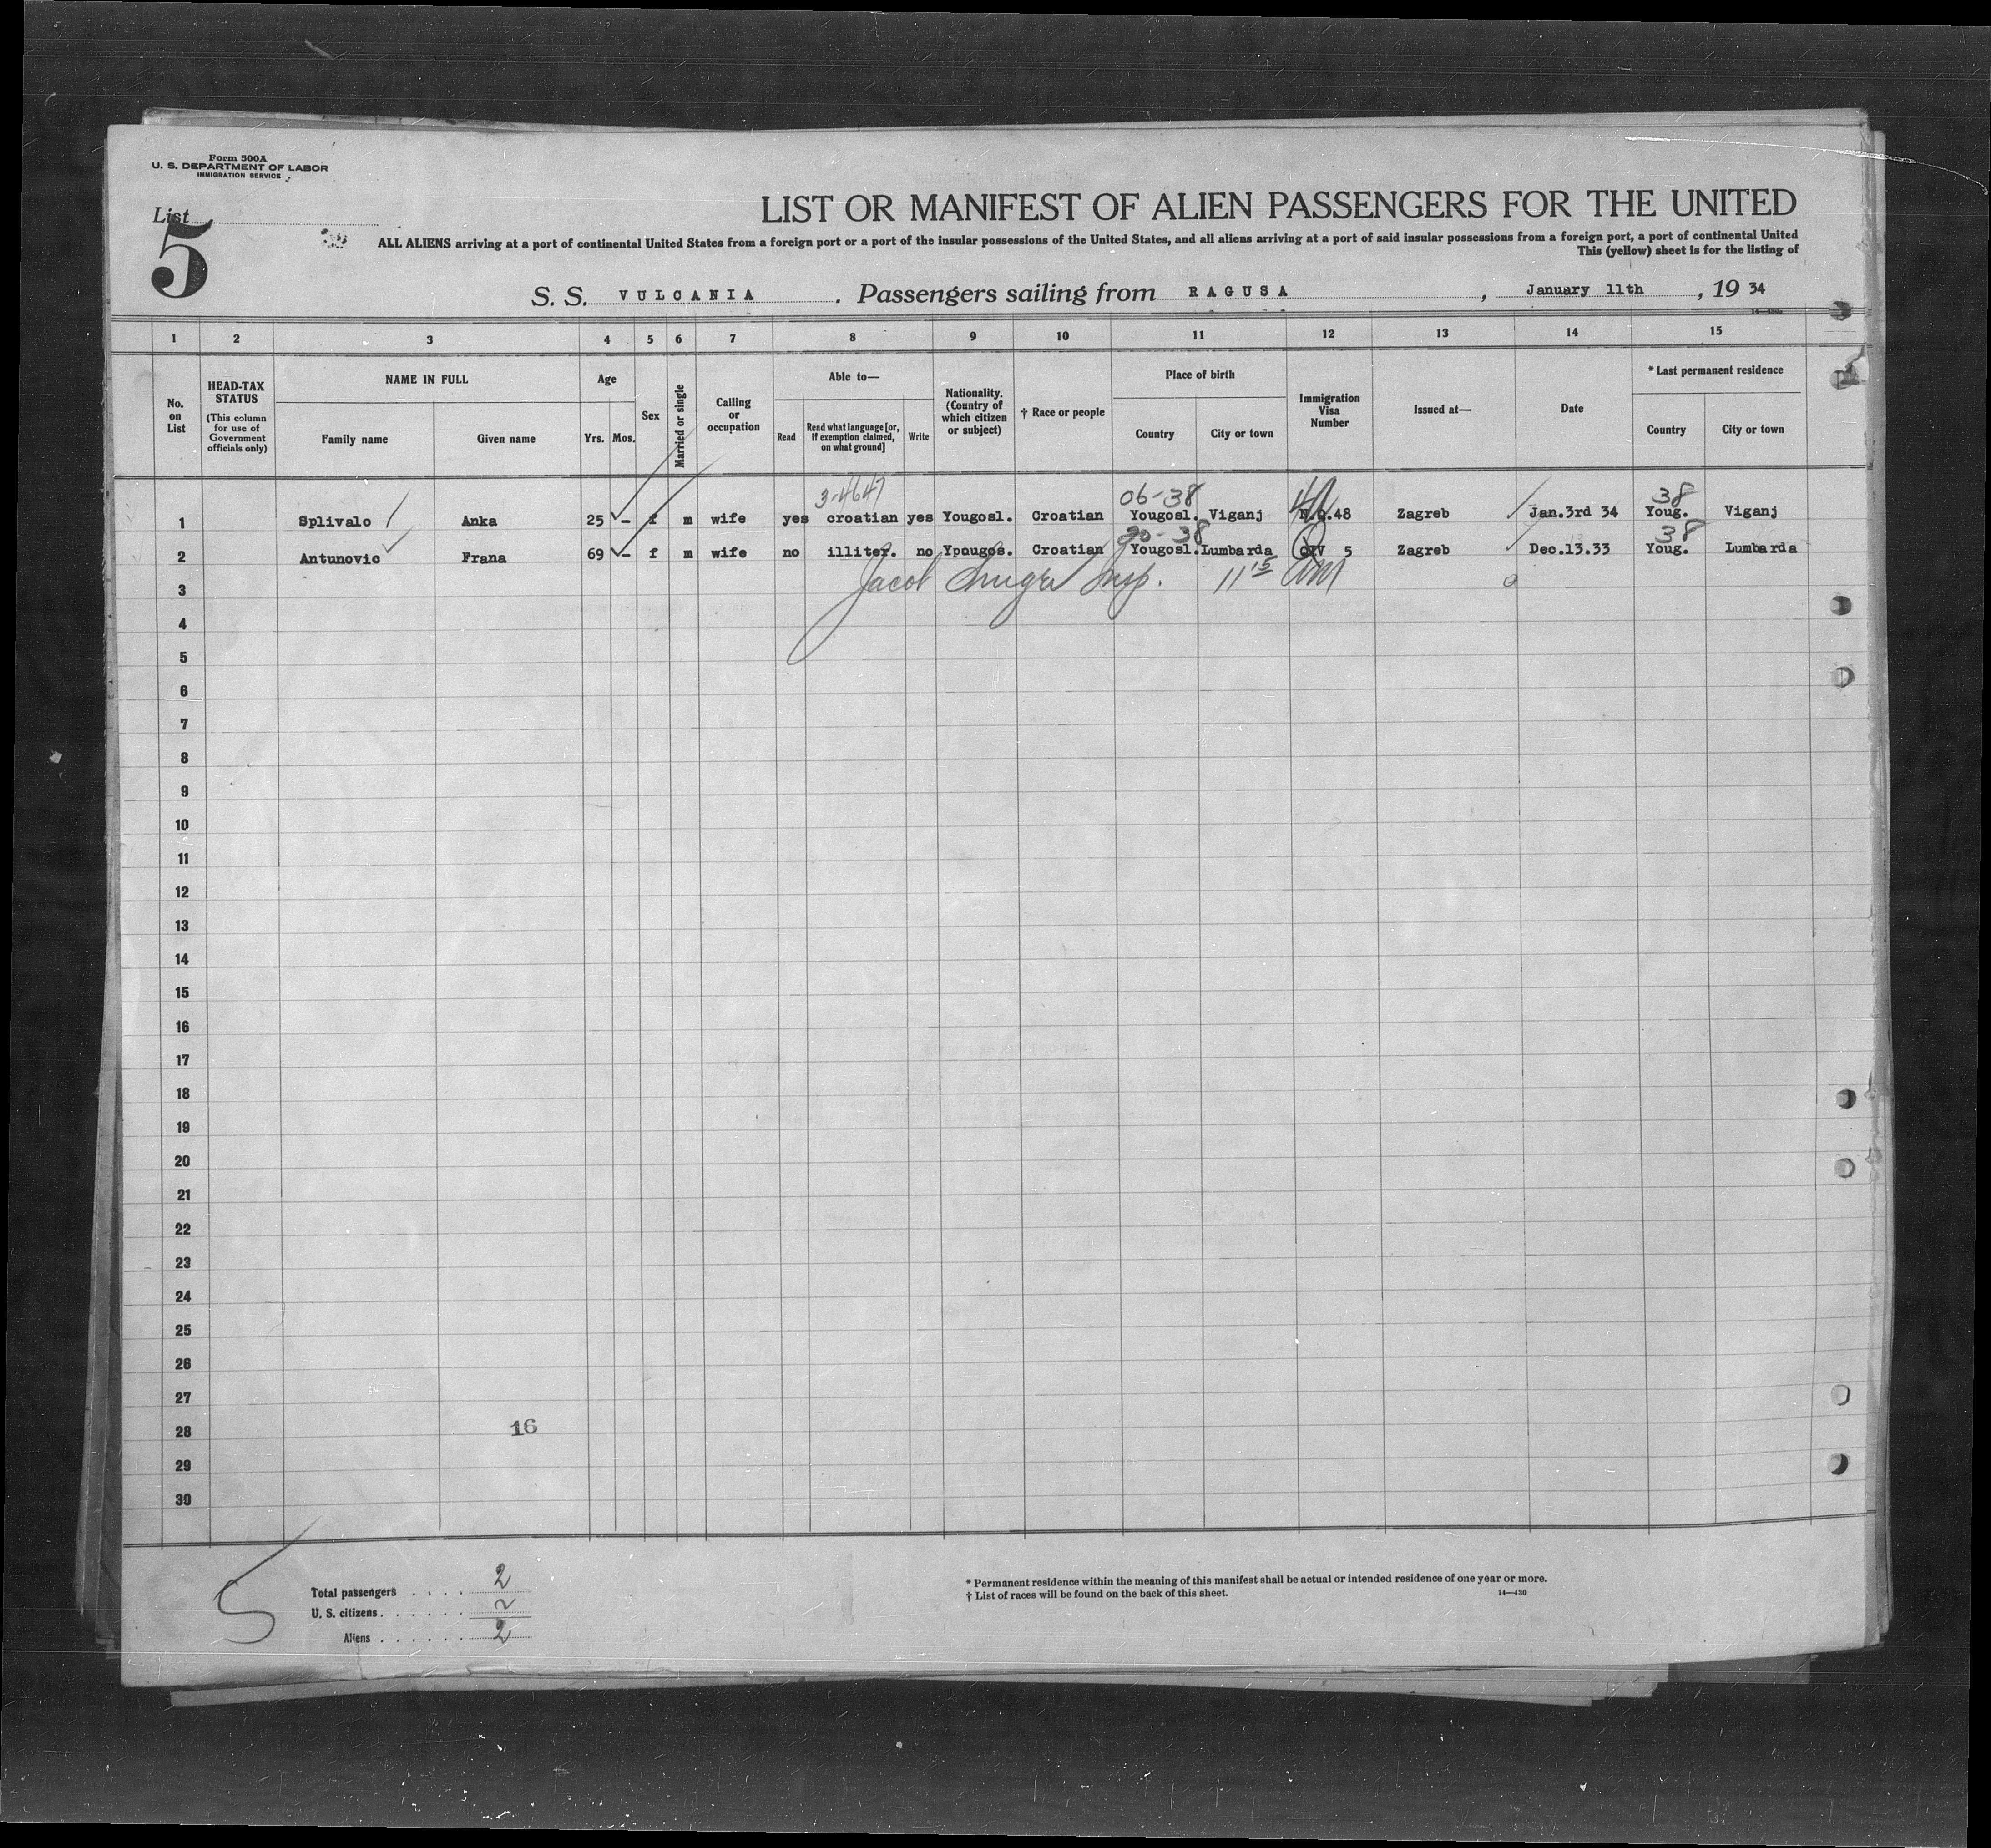 Form 500A
U. S. DEPARTMENT OF LABOR
IMMIGRATION SERVICE
List
5
LIST OR MANIFEST OF ALIEN PASSENGERS FOR THE UNITED
ALL ALIENS arriving at a port of continental United States from a foreign port or a port of the insular possessions of the United States, and all aliens arriving at a port of said insular possessions from a foreign port, a port of continental United
This (yellow) sheet is for the listing of
S. S. VULCANIA . Passengers sailing from RAGUSA , January 11th , 19 34
1 2 3 4 5 6 7 8 9 10 11 12 13 14 15
No. on List
HEAD-TAX STATUS (This column for use of Government officials only)
NAME IN FULL
Family name Given name
Age
Yrs. Mos.
Sex
Married or single
Calling or occupation
Able to—
Read
Read what language [or, if exemption claimed, on what ground]
Write
Nationality. (Country of which citizen or subject)
† Race or people
Place of birth
Country City or town
Immigration Visa Number
Issued at—
Date
* Last permanent residence
Country City or town
3-4647 06-38 38
1 Splivalo Anka 25 - f m wife yes croatian yes Yougosl. Croatian Yougosl. Viganj N.Q.48 Zagreb Jan.3rd 34 Youg. Viganj
38 38
2 Antunovic Frana 69 - f m wife no illiter. no Ypougos. Croatian Yougosl. Lumbarda 5 Zagreb Dec.13.33 Youg. Lumbarda
3 Jacob Insp. 11 15 AM
4
5
6
7
8
9
10
11
12
13
14
15
16
17
18
19
20
21
22
23
24
25
26
27
28 16
29
30
5
Total passengers . . . . 2
U. S. citizens . . . . . .
Aliens . . . . . . 2
* Permanent residence within the meaning of this manifest shall be actual or intended residence of one year or more.
† List of races will be found on the back of this sheet. 14—430